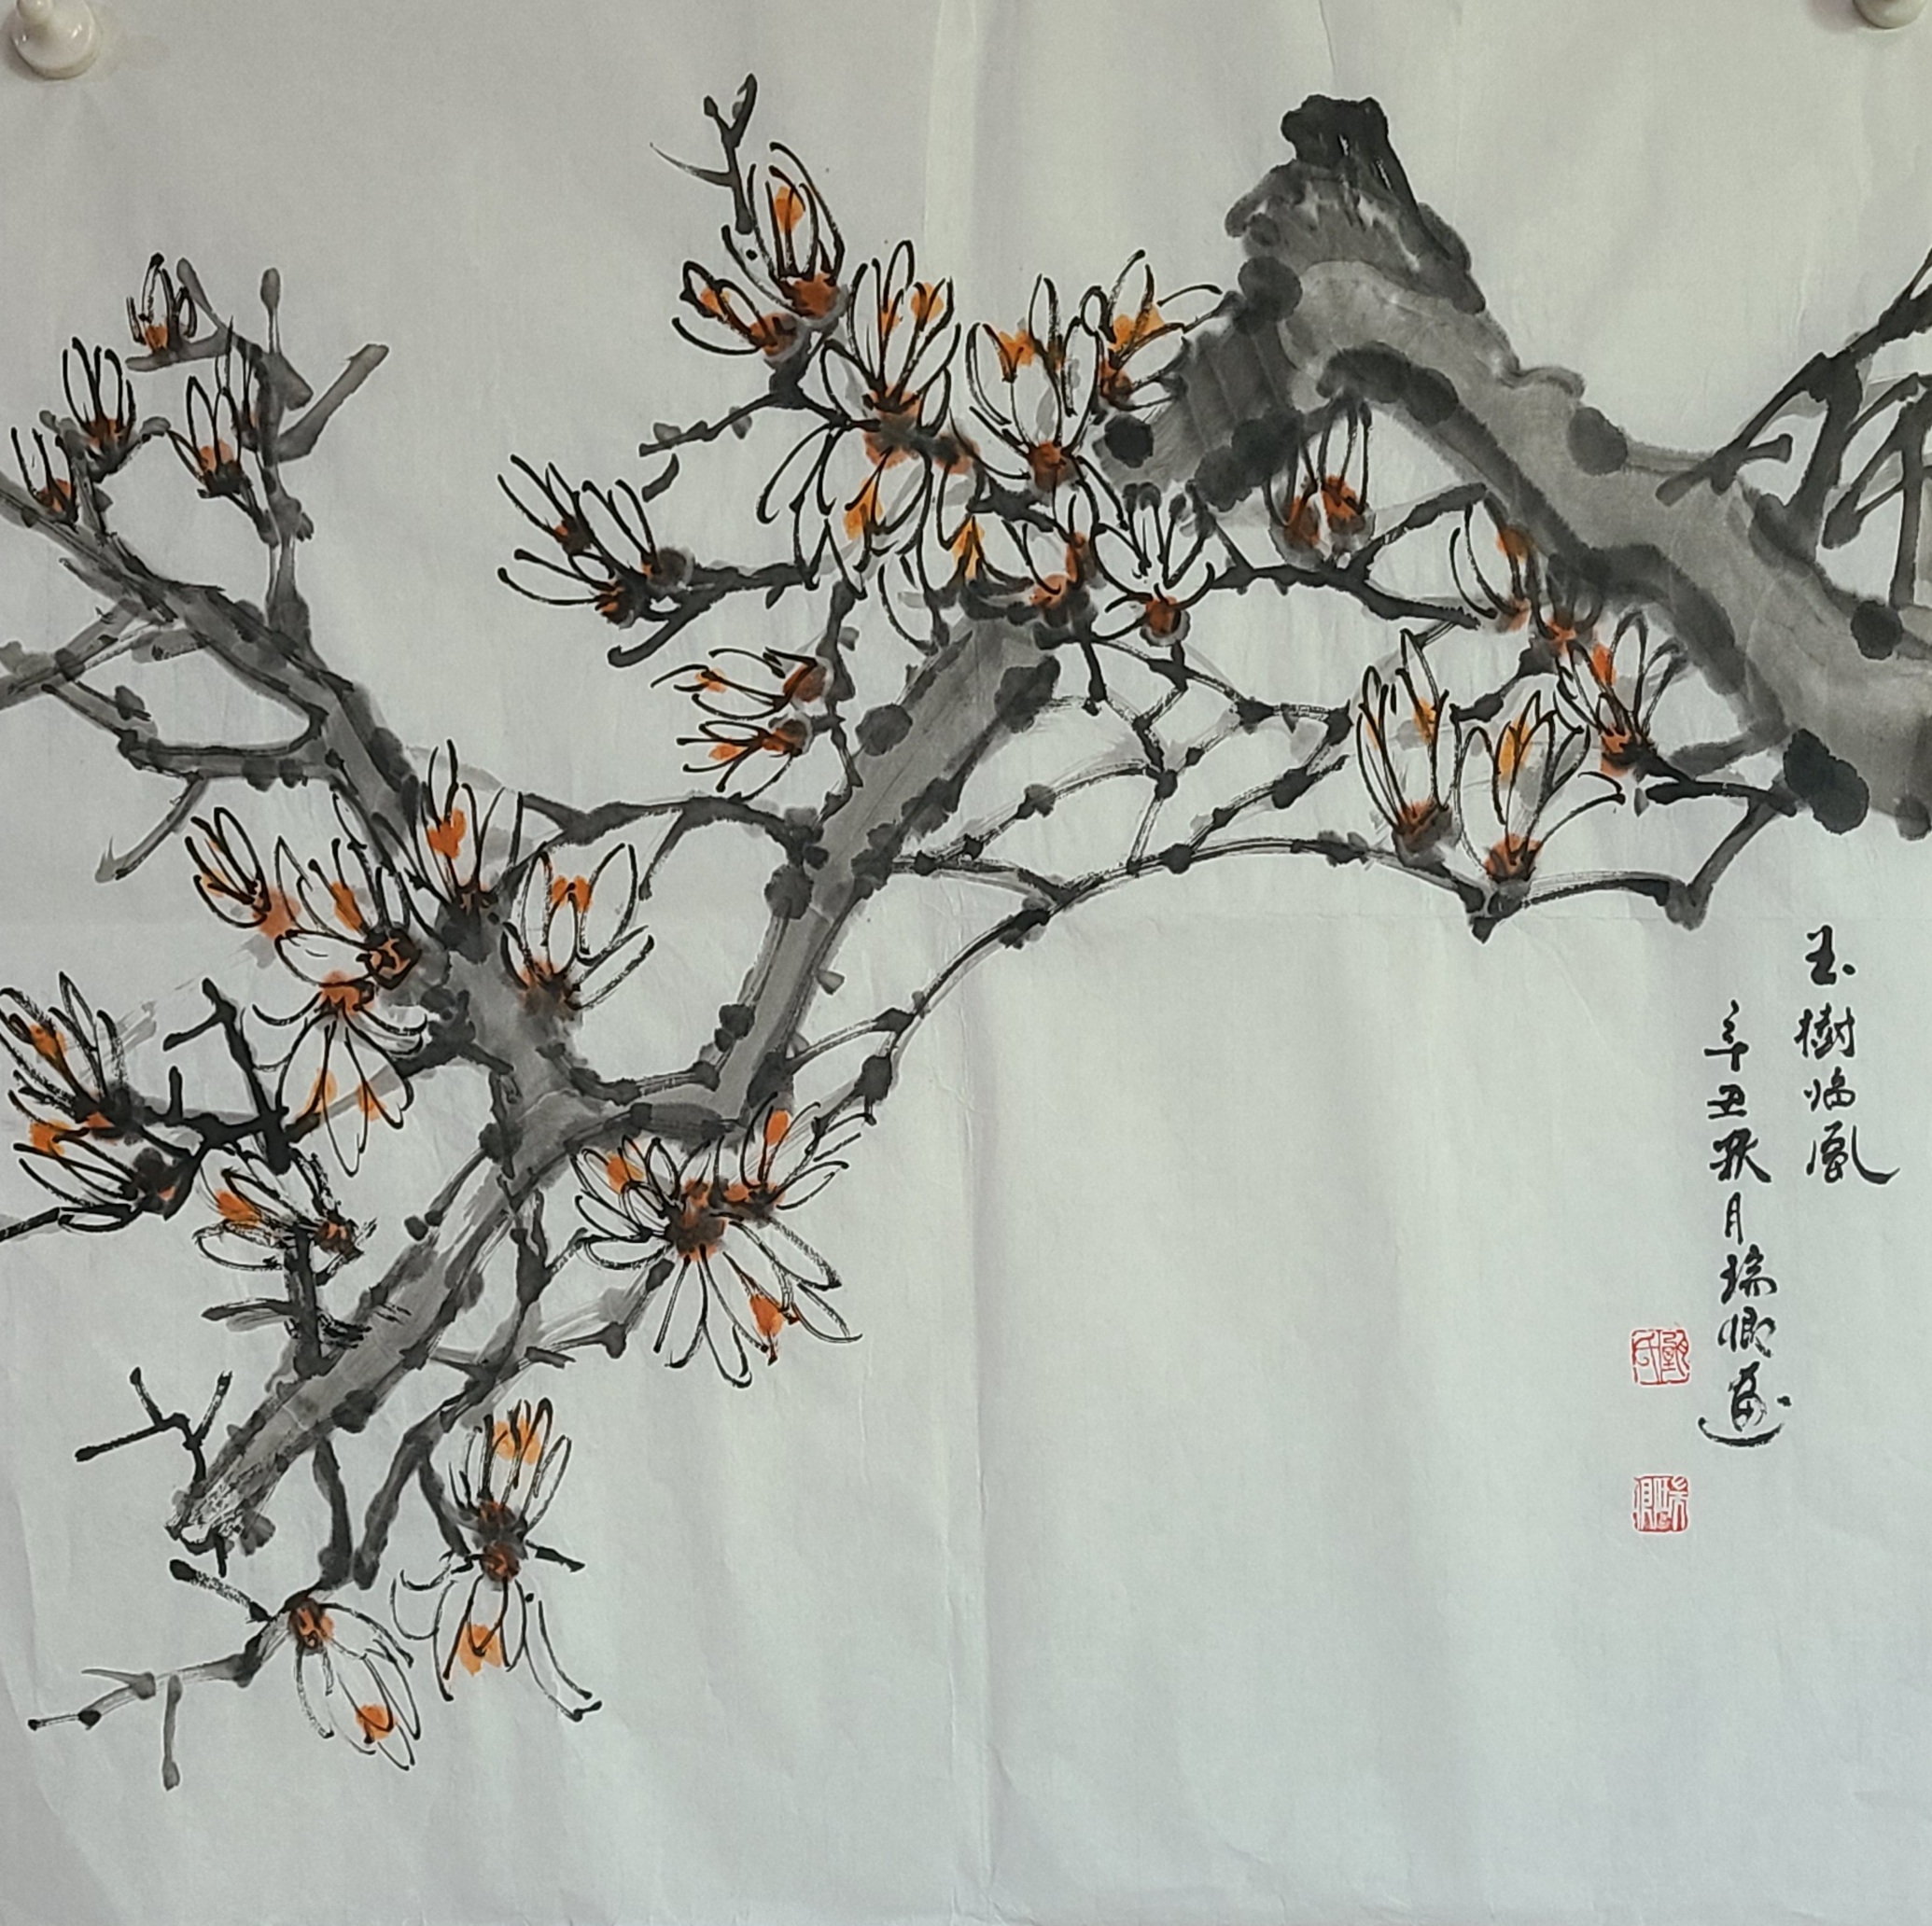 玉樹临風
辛丑秋月瑞卿画